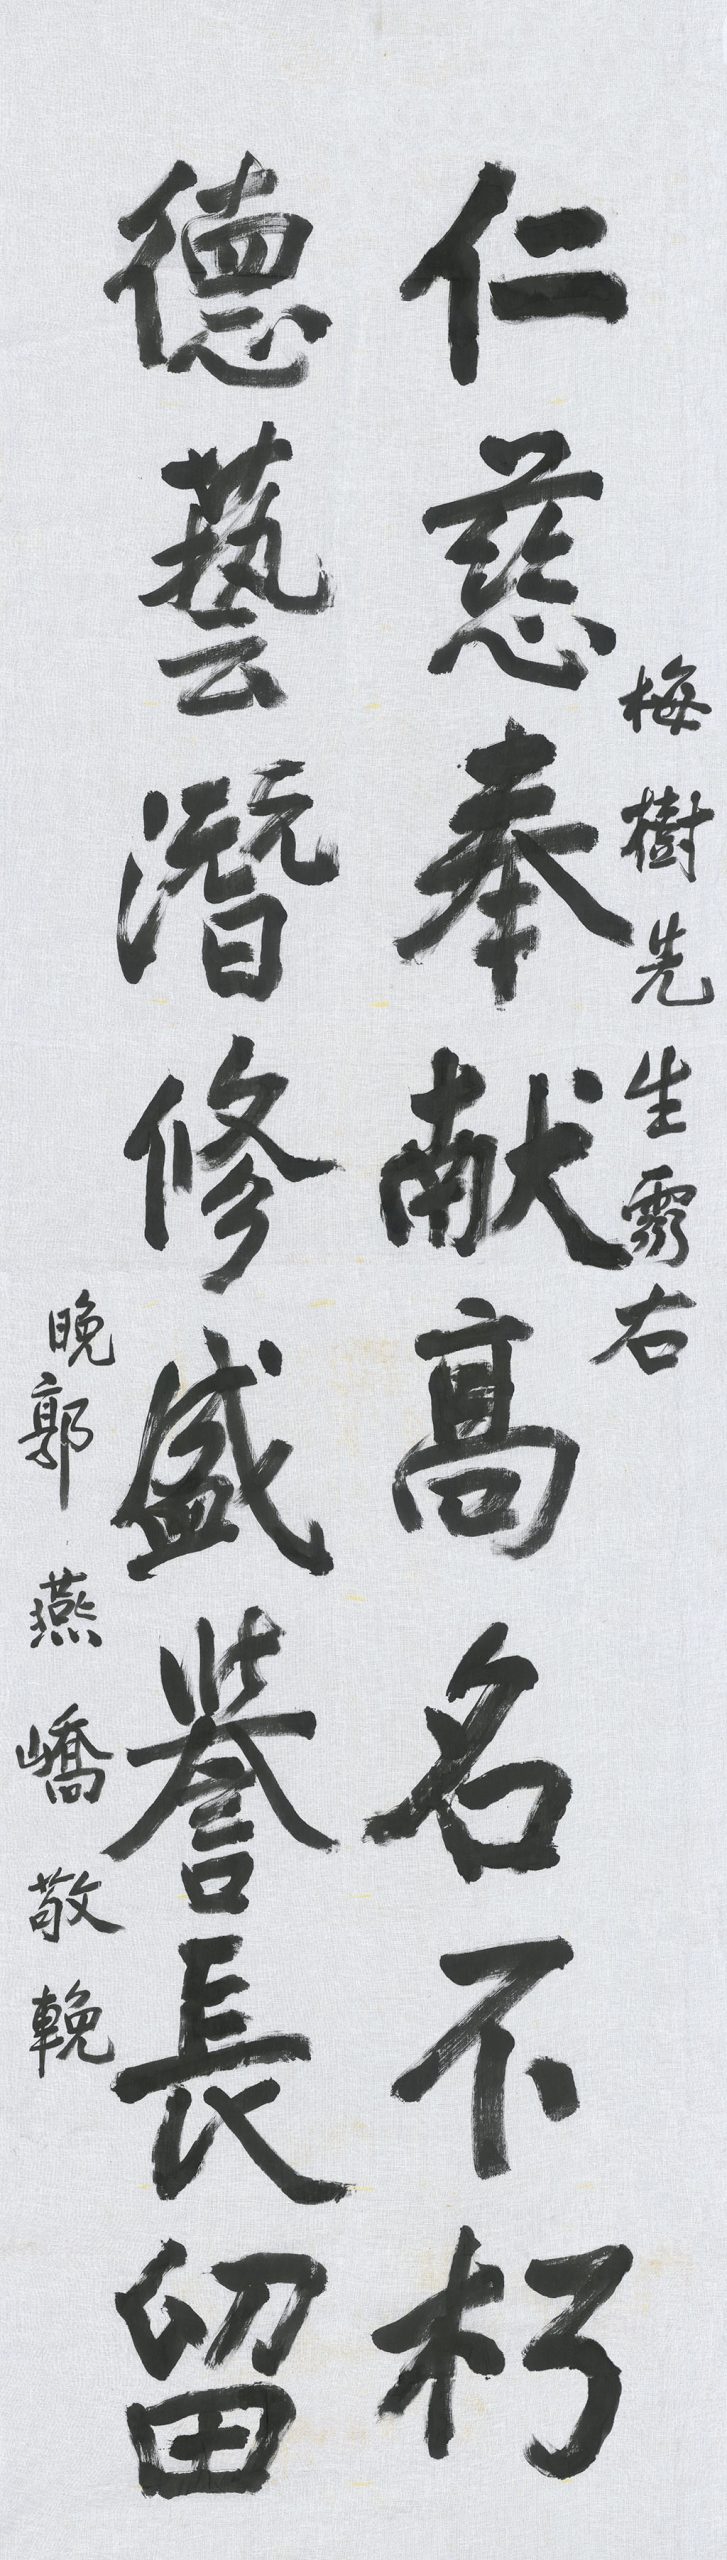 梅樹先生霛右
仁慈奉献高名不朽
德藝潛修盛譽長留
晚郭燕嶠敬輓